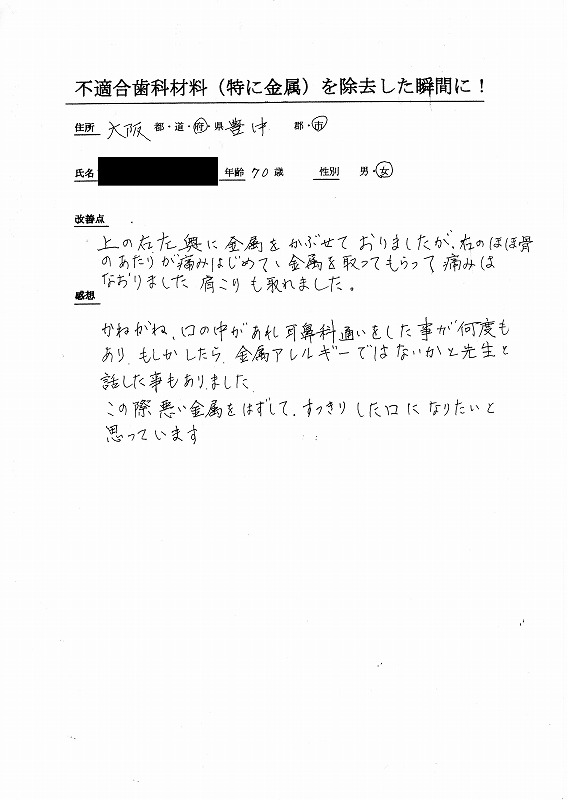 不適合歯科材料（特に金属）を除去した瞬間に！
住所 大阪 都・道・府・県 豊中 郡・市
氏名 年齢 70 歳 性別 男・女
改善点
上の右左奥に金属をかぶせておりましたが、右のほほ骨
のあたりが痛みはじめてい金属を取ってもらって痛みは
なおりました 肩こりも取れました。
感想
かねがね、口の中があれ耳鼻科通いをした事が何度も
あり、もしかしたら、金属アレルギーではないかと先生と
話した事もありました
この際悪い金属をはずして、すっきりした口になりたいと
思っています